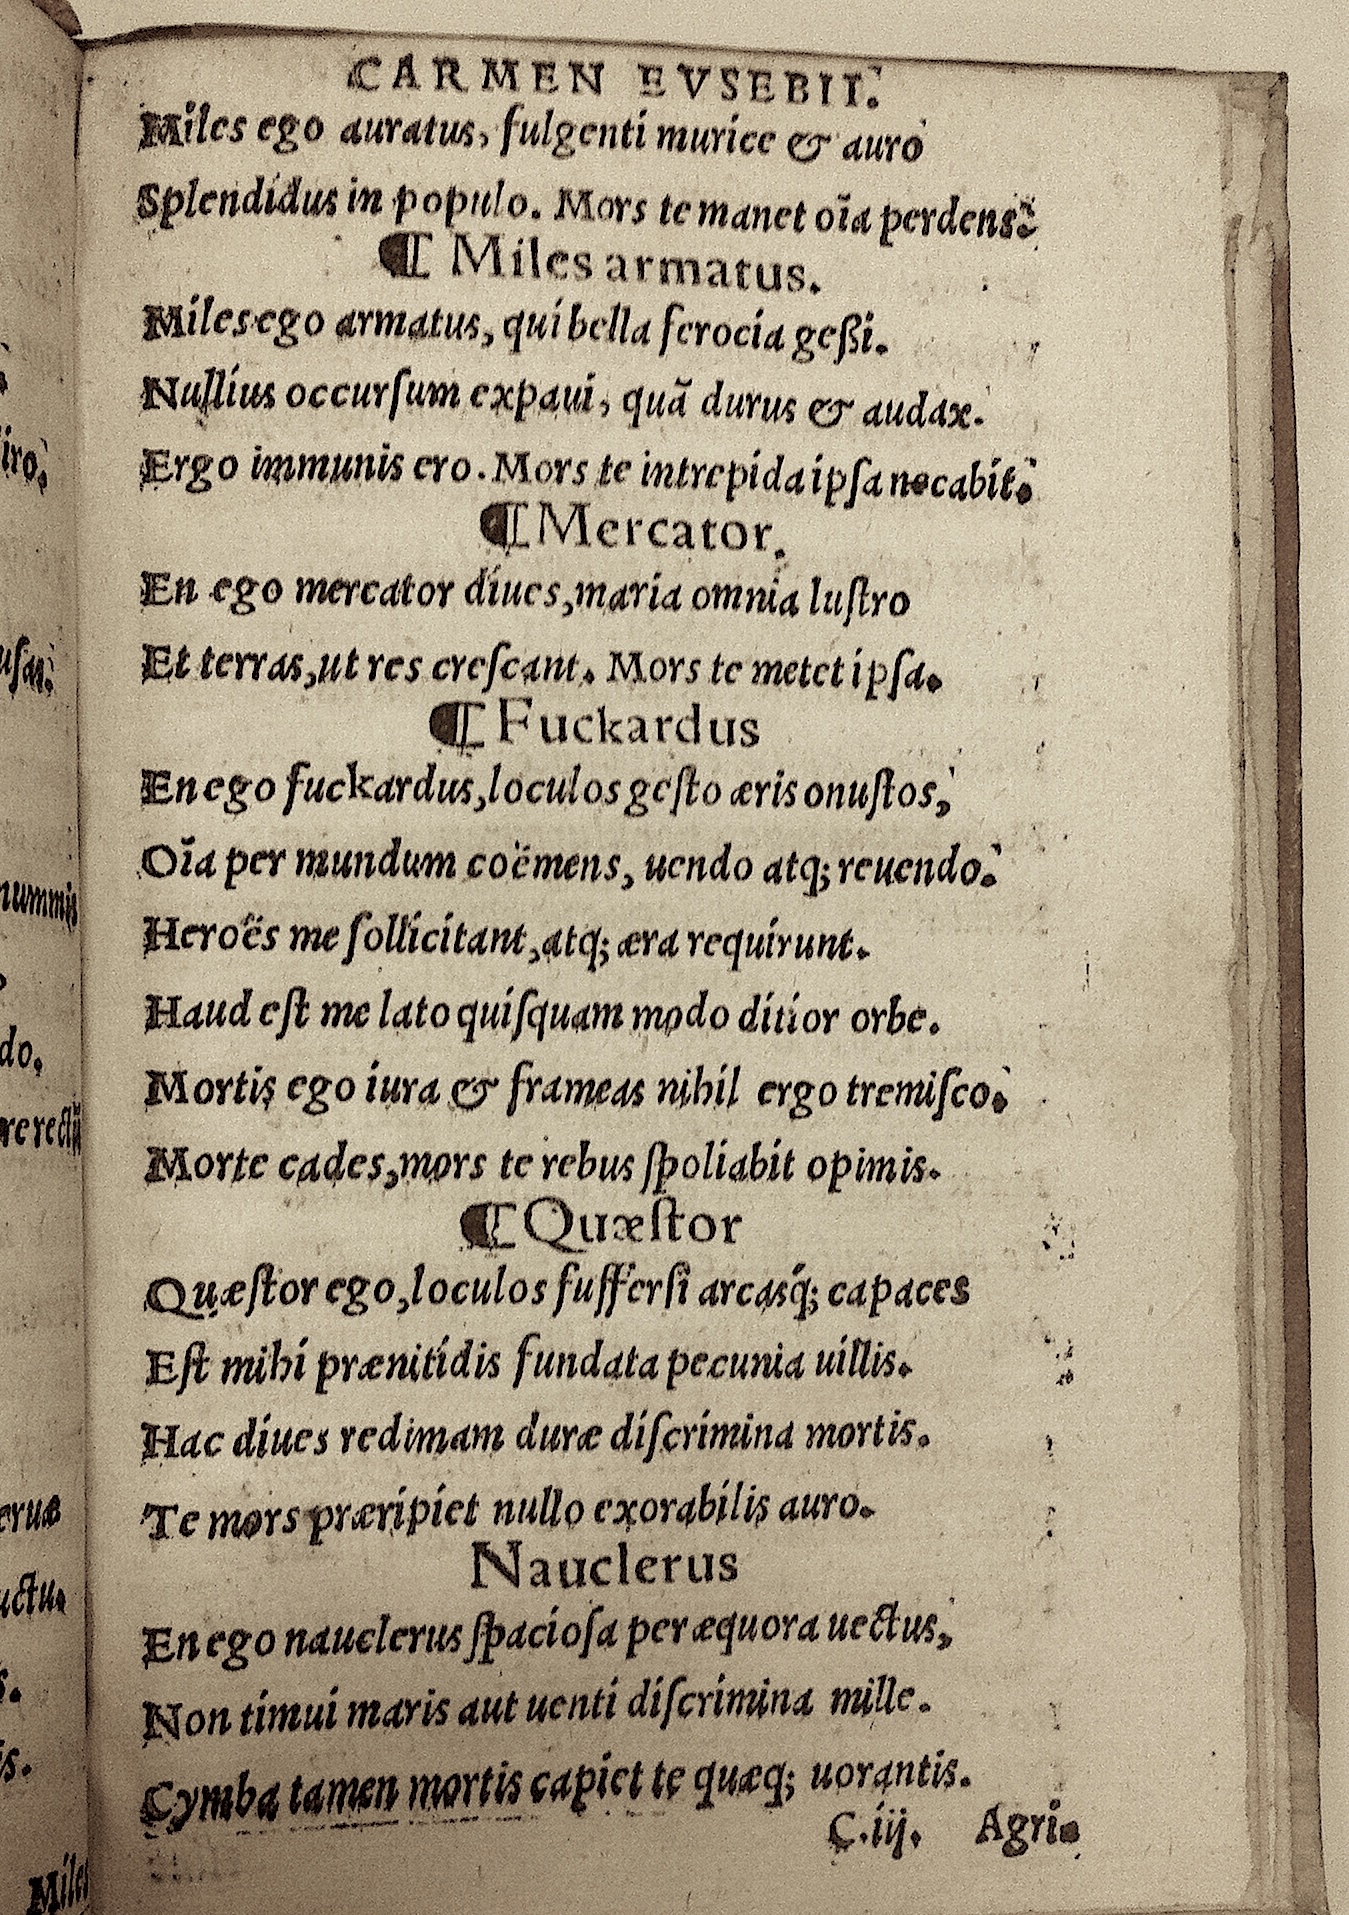 CARMEN EVSEBII.
Miles ego auratus, fulgenti murice & auro
Splendidus in populo. Mors te manet oĩa perdens.
¶ Miles armatus.
Miles ego armatus, qui bella ferocia geßi.
Nullius occurſum expaui, quã durus & audax.
Ergo immunis ero. Mors te intrepida ipſa necabit.
¶ Mercator.
En ego mercator diues, maria omnia luſtro
Et terras, ut res creſcant. Mors te metet ipſa.
¶ Fuckardus
En ego fuckardus, loculos geſto æris onuſtos,
Oĩa per mundum coëmens, uendo atq; reuendo.
Heroës me ſollicitant, atq; æra requirunt.
Haud eſt me lato quiſquam modo ditior orbe.
Mortis ego iura & frameas nihil ergo tremiſco.
Morte cades, mors te rebus ſpoliabit opimis.
¶ Quæſtor
Quæſtor ego, loculos ſufferſi arcasq́; capaces
Eſt mihi prænitidis fundata pecunia uillis.
Hac diues redimam duræ diſcrimina mortis.
Te mors præripiet nullo exorabilis auro.
Nauclerus
En ego nauclerus ſpacioſa per æquora uectus,
Non timui maris aut uenti diſcrimina mille.
Cymba tamen mortis capiet te quæq; uorantis.
C.iij. Agri.